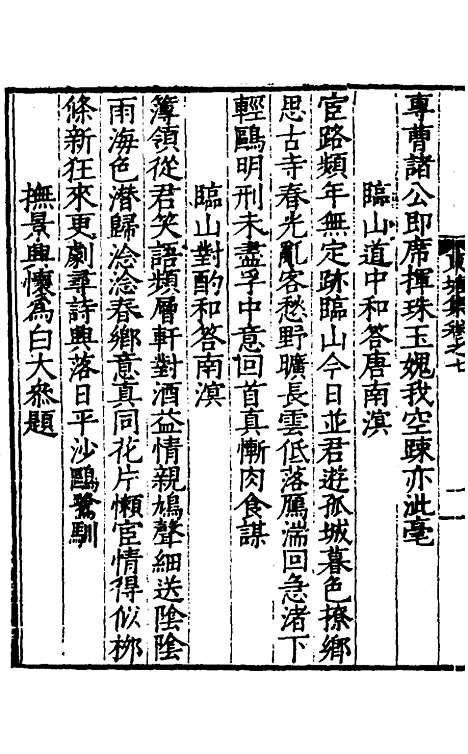 專曹諸公即席揮珠玉媿我空踈亦泚毫
臨山道中和答唐南溟
宦路頻年無定跡臨山今日並君遊孤城暮色撩鄉
思古寺春光亂客愁野曠長雲低落鴈湍回急渚下
輕鷗明刑未盡孚中意回首真慚肉食謀
臨山對酌和答南溟
簿領從君笑語頻層軒對酒益情親鳩聲細送陰陰
雨海色潛歸淰淰春鄉意真同花片懶宦情得似柳
條新狂來更劇尋詩興落日平沙鷗鷺馴
撫景興懷為白大參題